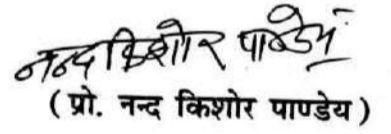 नन्द किशोर पाण्डेय
( प्रो. नन्द किशोर पाण्डेय )